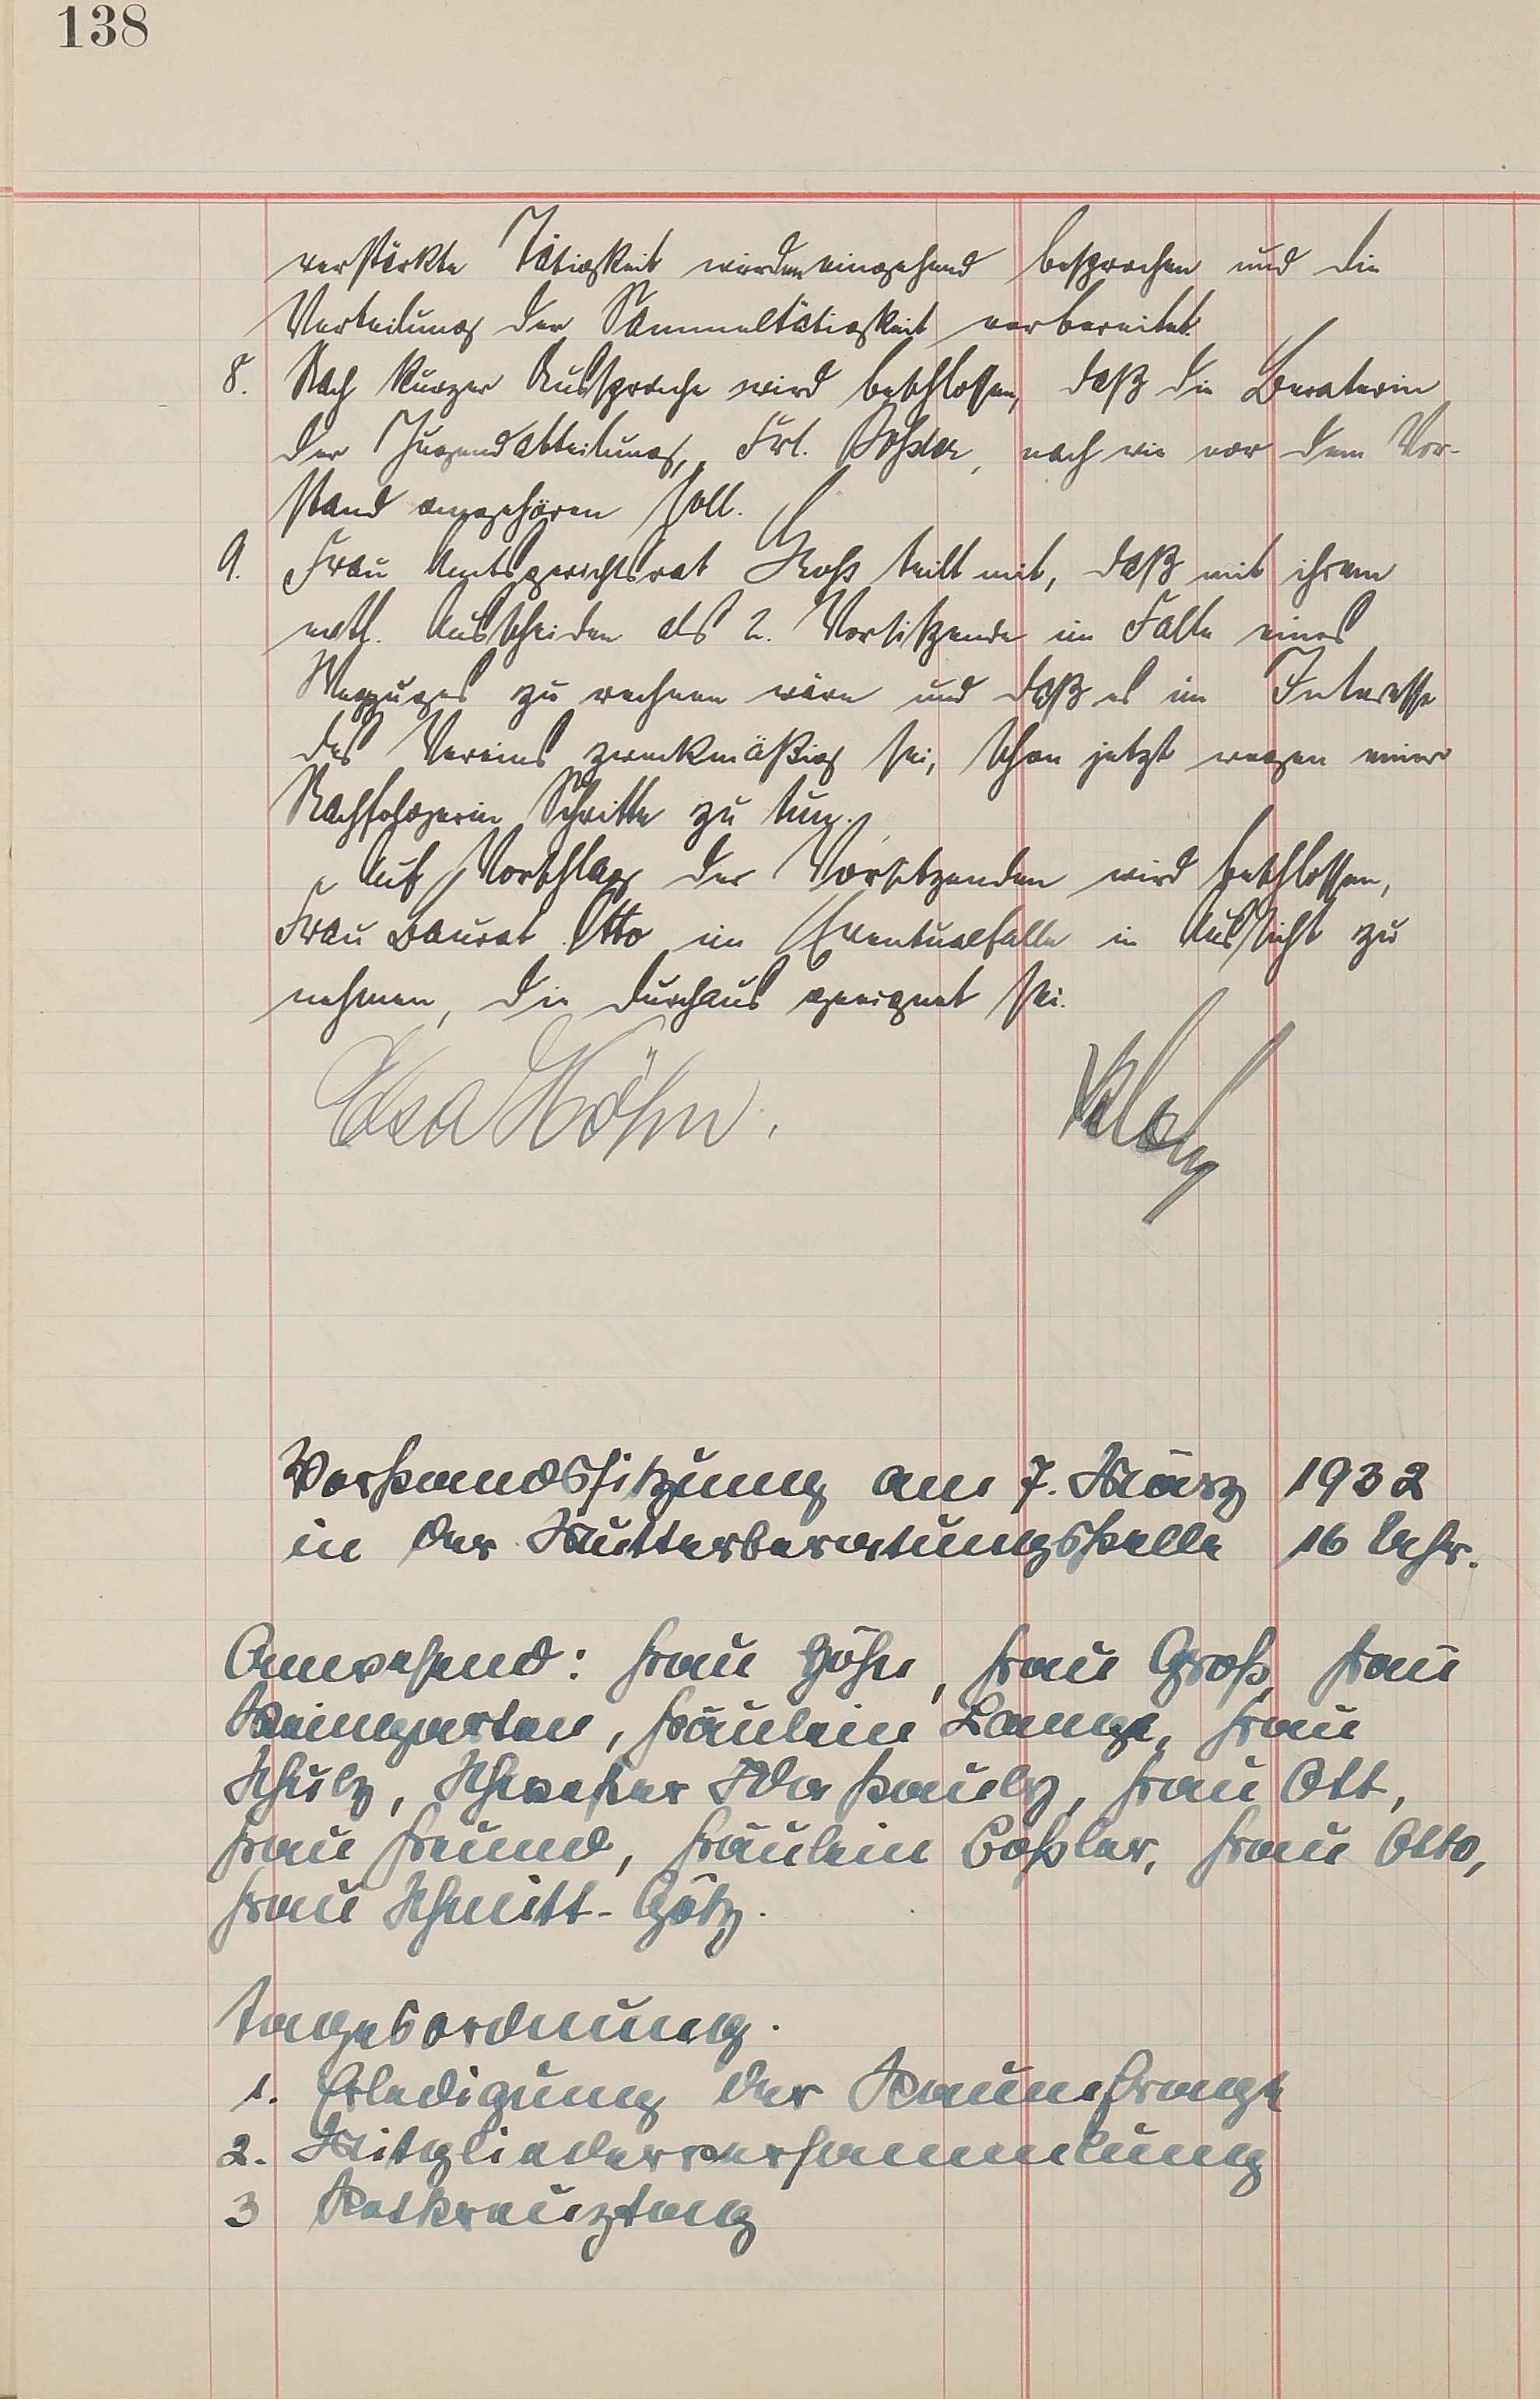 138
verstärkte Tätigkeit werden eingehend besprochen und die
Verteilung der Sammeltätigkeit vorbereitet.
8. Nach kurzer Aussprache wird beschlossen, daß die Beraterin
der Jugendabteilung, Frl. Boßler, nach wie vor dem Vor-
stand angehören soll.
9. Frau Amtsgerichtsrat Groß teilt mit, daß mit ihrem
evtl. Ausscheiden als 2. Vorsitzende im Falle eines
Wegzuges zu rechnen wäre und daß es im Interesse
des Vereins zweckmäßig sei, schon jetzt wegen einer
Nachfolgerin Schritte zu tun.
Auf Vorschlag der Vorsitzenden wird beschlossen,
Frau Baurat Otto im Eventualfalle in Aussicht zu
nehmen, die durchaus geeignet sei.
Elsa Höhn.
Vorstandssitzung am 7. März 1932
in der Mutterberatungsstelle 16 Uhr.
Anwesend: Frau Höhn, Frau Groß, Frau
Weingarten, Fräulein Lange, Frau
Schulz, Schwester Ida Pauly, Frau Ott,
Frau Freund, Fräulein Boßler, Frau Otto,
Frau Schmitt-Götz.
Tagesordnung.
1. Erledigung der Raumfrage
2. Mitgliederversammlung
3 Rotkreuztag